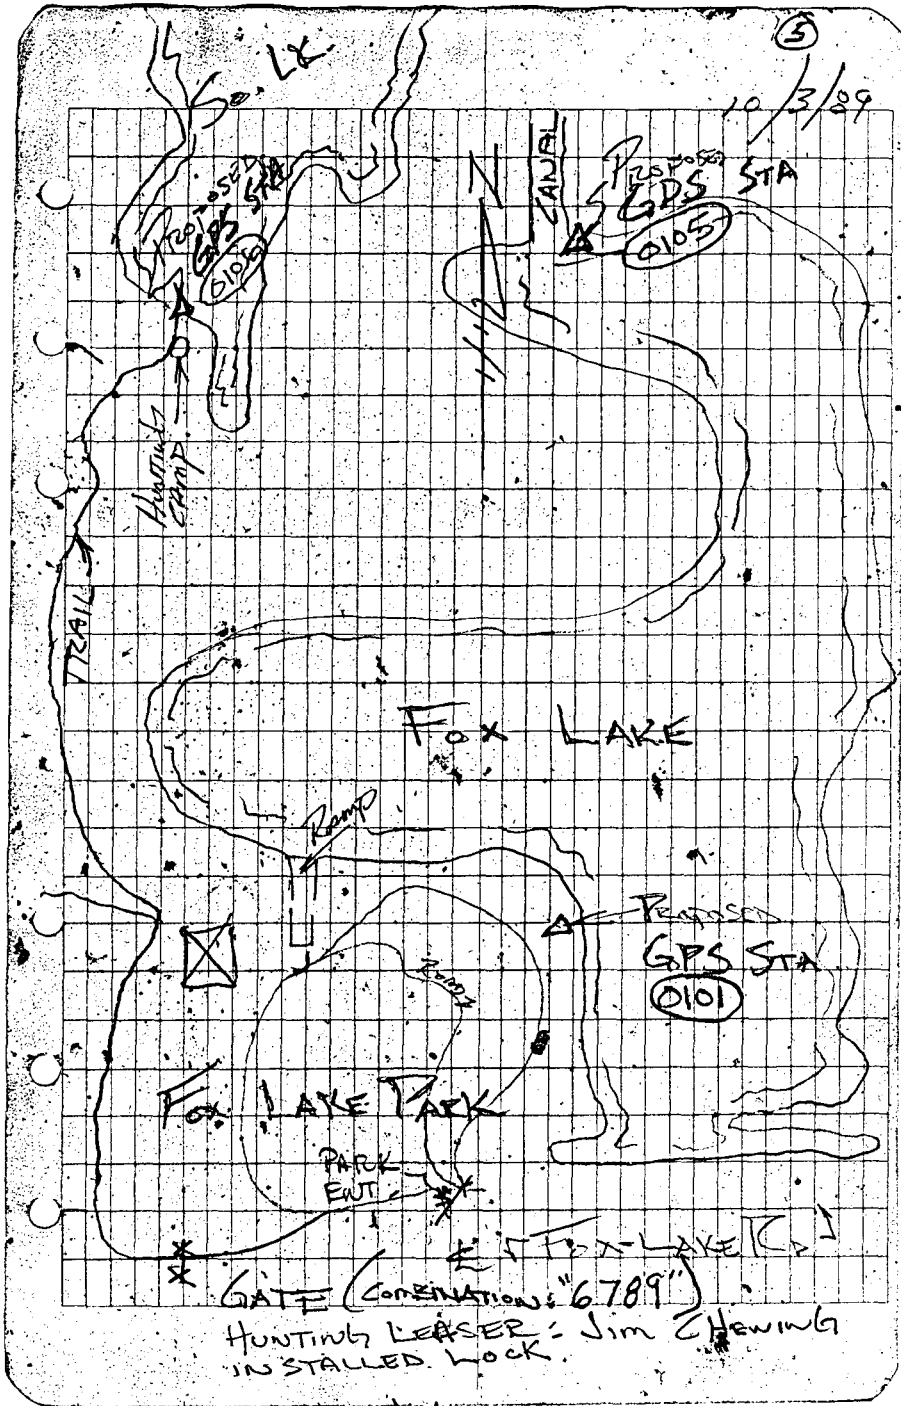 5
10/3/09
So. LK.
PROPOSED
GPS STA
0106
N
CANAL
PROPOSED
GPS STA
0105
HUNTING
CAMP
TRAIL
FOX LAKE
Ramp
PROPOSED
GPS STA
0101
ROAD
FOX LAKE PARK
PARK
ENT.
FOX LAKE RD
GATE (COMBINATION: "6789")
HUNTING LEASER: Jim CHEWING
INSTALLED LOCK.